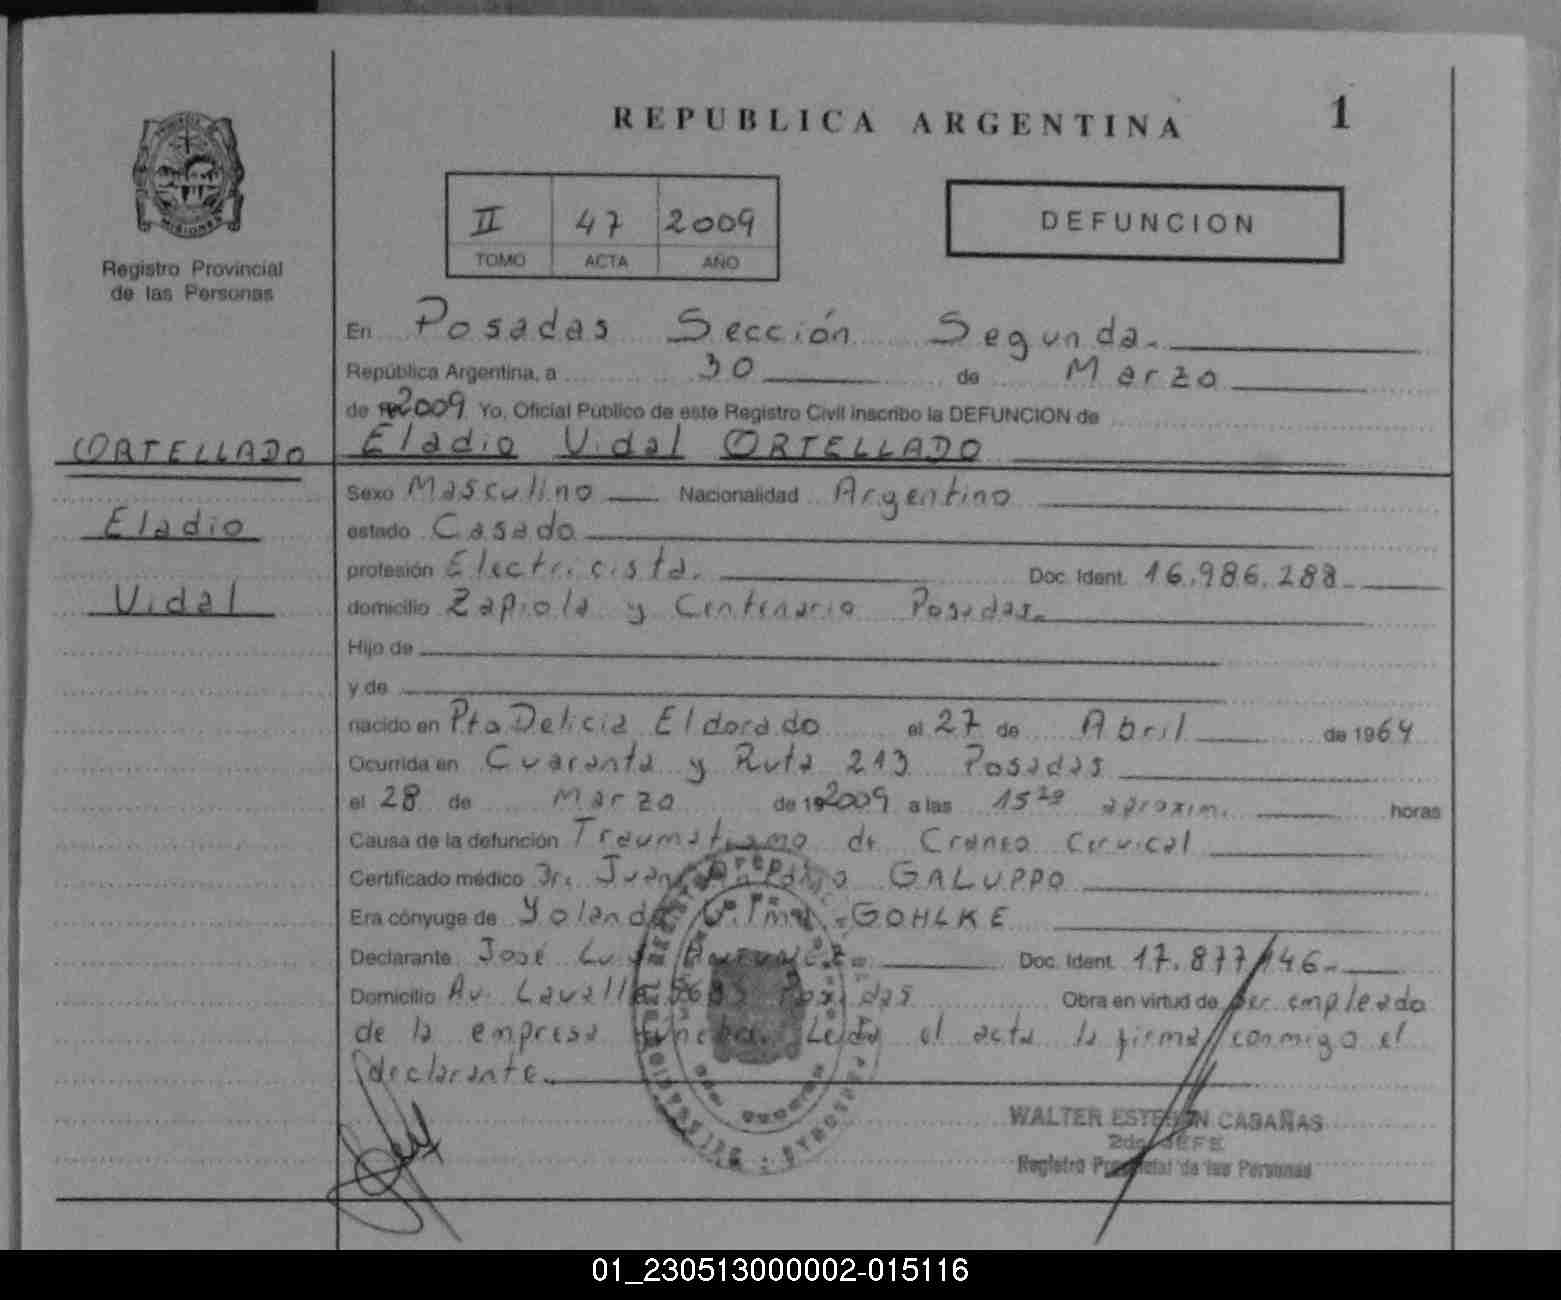 REPUBLICA ARGENTINA
1
MISIONES
Registro Provincial
de las Personas
II 47 2009
TOMO ACTA AÑO
DEFUNCION
En Posadas Sección Segunda.
República Argentina, a 30 de Marzo
de 2009 Yo, Oficial Público de este Registro Civil inscribo la DEFUNCION de
CORTELLADO
Eladio Vidal CORTELLADO
Eladio
Vidal
Sexo Masculino Nacionalidad Argentino
estado Casado
profesión Electricista. Doc. Ident. 16.986.288
domicilio Zapiola y Centenario Posadas.
Hijo de
y de
nacido en Pto Delicia Eldorado el 27 de Abril de 1964
Ocurrida en Cuaranta y Ruta 213 Posadas
el 28 de Marzo de 192009 a las 15 aproxim. horas
Causa de la defunción Traumatismo de Craneo Cervical
Certificado médico Dr. Juan GALUPPO
Era cónyuge de Yolanda Vilma GOHLKE
Declarante José Luis Doc. Ident. 17.877.146-
Domicilio Av. Lavalle Posadas Obra en virtud de ser empleado
de la empresa funebre. Leida el acta la firma conmigo el
declarante.
WALTER ESTEBAN CABAÑAS
2do JEFE
Registro Provincial de las Personas
01_230513000002-015116